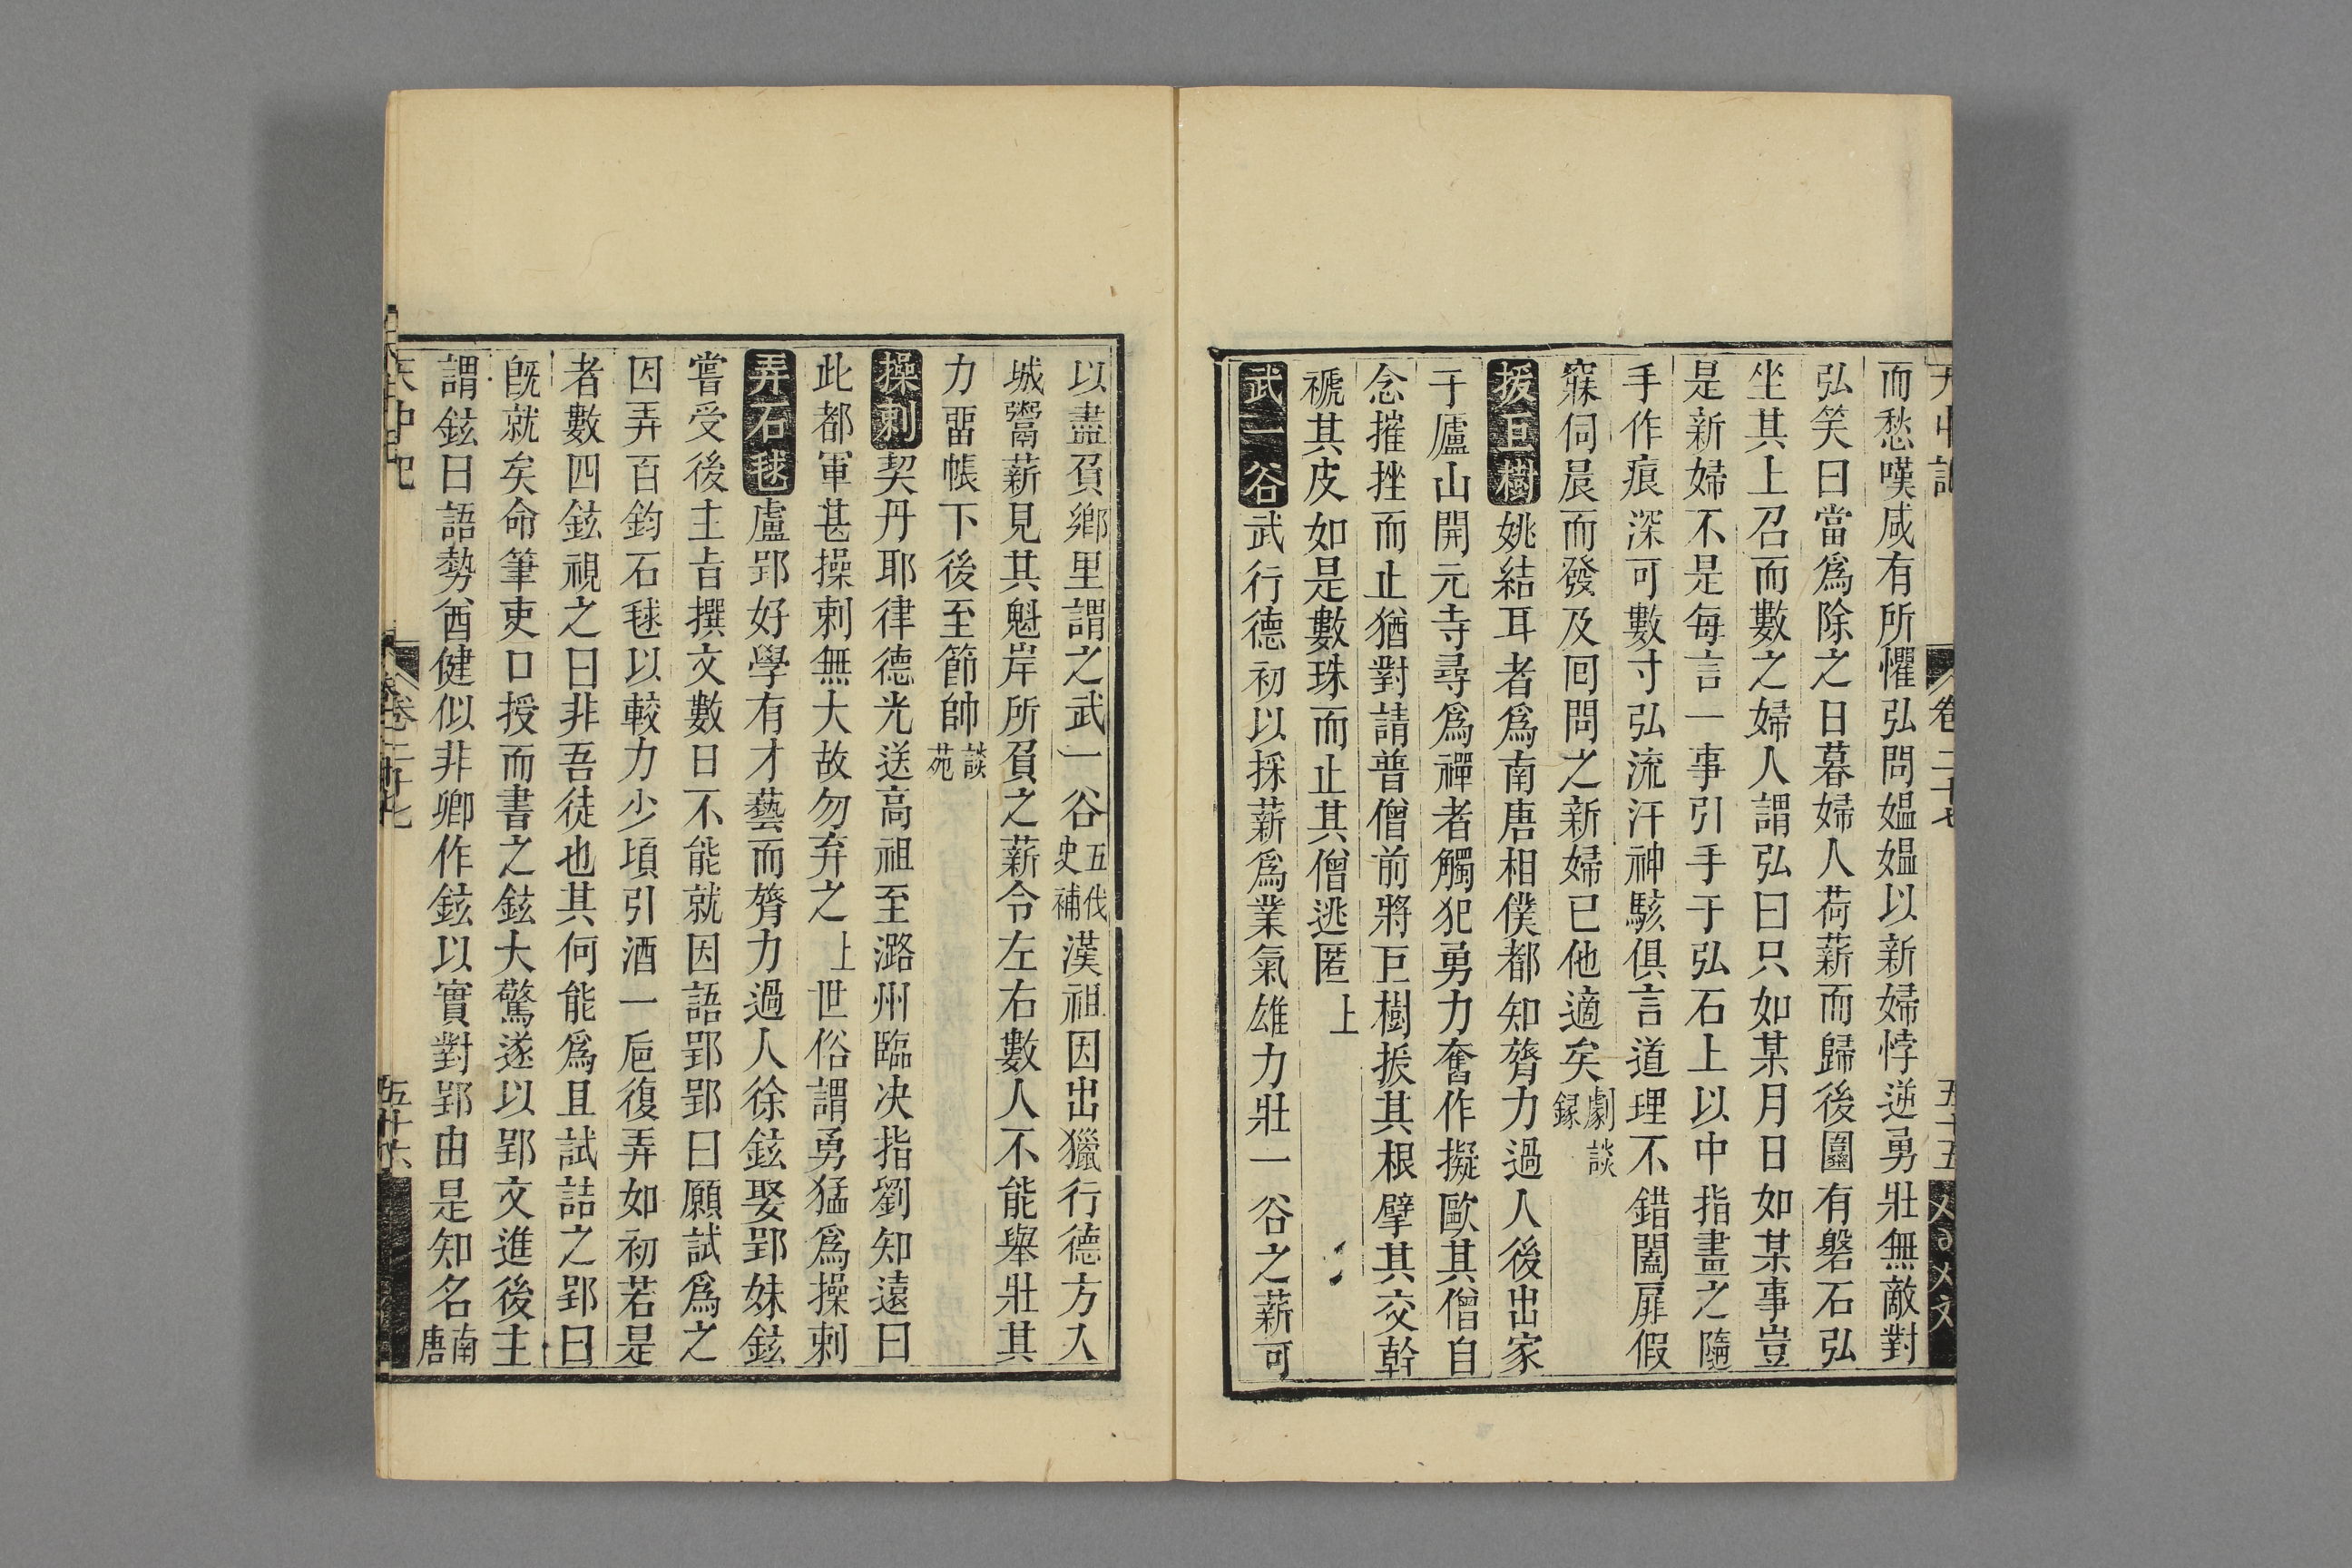 而愁嘆咸有所懼弘問媼媼以新婦悖逆勇壯無敵對
弘笑曰當爲除之日暮婦人荷薪而歸後園有磐石弘
坐其上召而數之婦人謂弘曰只如某月日如某事豈
是新婦不是每言一事引手于弘石上以中指畫之隨
手作痕深可數寸弘流汗神駭俱言道理不錯闔扉假
寐伺晨而發及囘問之新婦已他適矣劇談録
拔巨樹姚結耳者爲南唐相僕都知膂力過人後出家
于廬山開元寺尋爲禪者觸犯勇力奮作擬歐其僧自
念摧挫而止猶對請普僧前將巨樹拔其根擘其交幹
褫其皮如是數珠而止其僧逃匿上
武一谷武行德初以採薪爲業氣雄力壯一谷之薪可
以盡負鄉里謂之武一谷五伐史補漢祖因出獵行德方入
城鬻薪見其魁岸所負之薪令左右數人不能舉壯其
力畱帳下後至節帥談苑
操剌契丹耶律德光送高祖至潞州臨决指劉知遠曰
此都軍甚操剌無大故勿弃之上世俗謂勇猛爲操剌
弄石毬盧郢好學有才藝而膂力過人徐鉉娶郢妹鉉
嘗受後主旨撰文數日不能就因語郢郢曰願試爲之
因弄百鈞石毬以較力少頃引酒一巵復弄如初若是
者數四鉉視之曰非吾徒也其何能爲且試詰之郢曰
旣就矣命筆吏口授而書之鉉大驚遂以郢文進後主
謂鉉曰語勢遒健似非卿作鉉以實對郢由是知名南唐